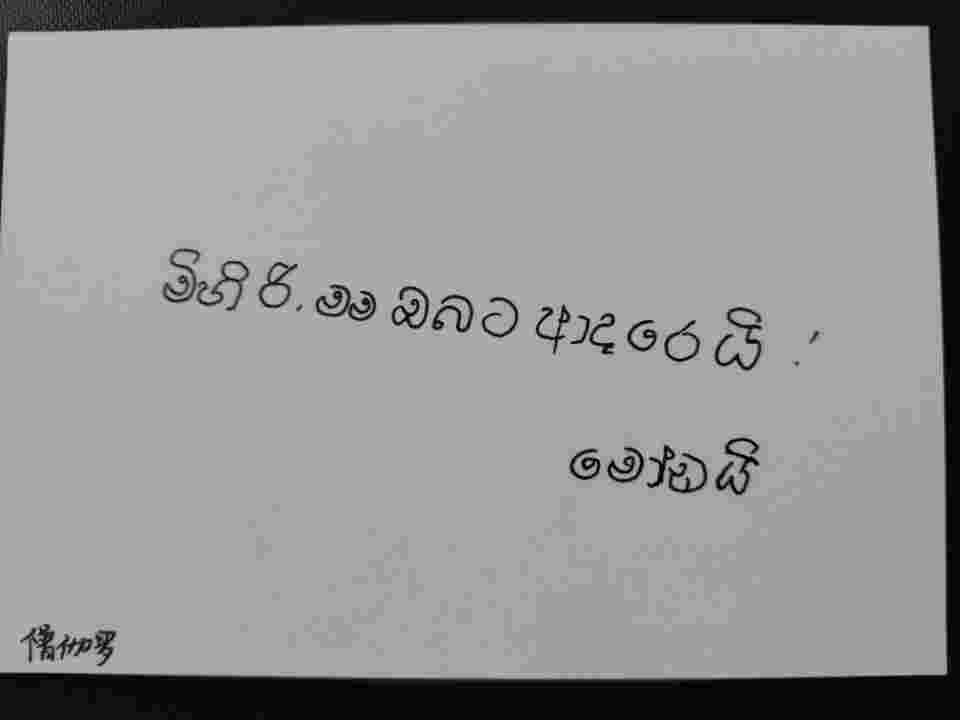 මිහිරි. මම ඔබට ආදරෙයි !
මොඪයි
僧伽罗